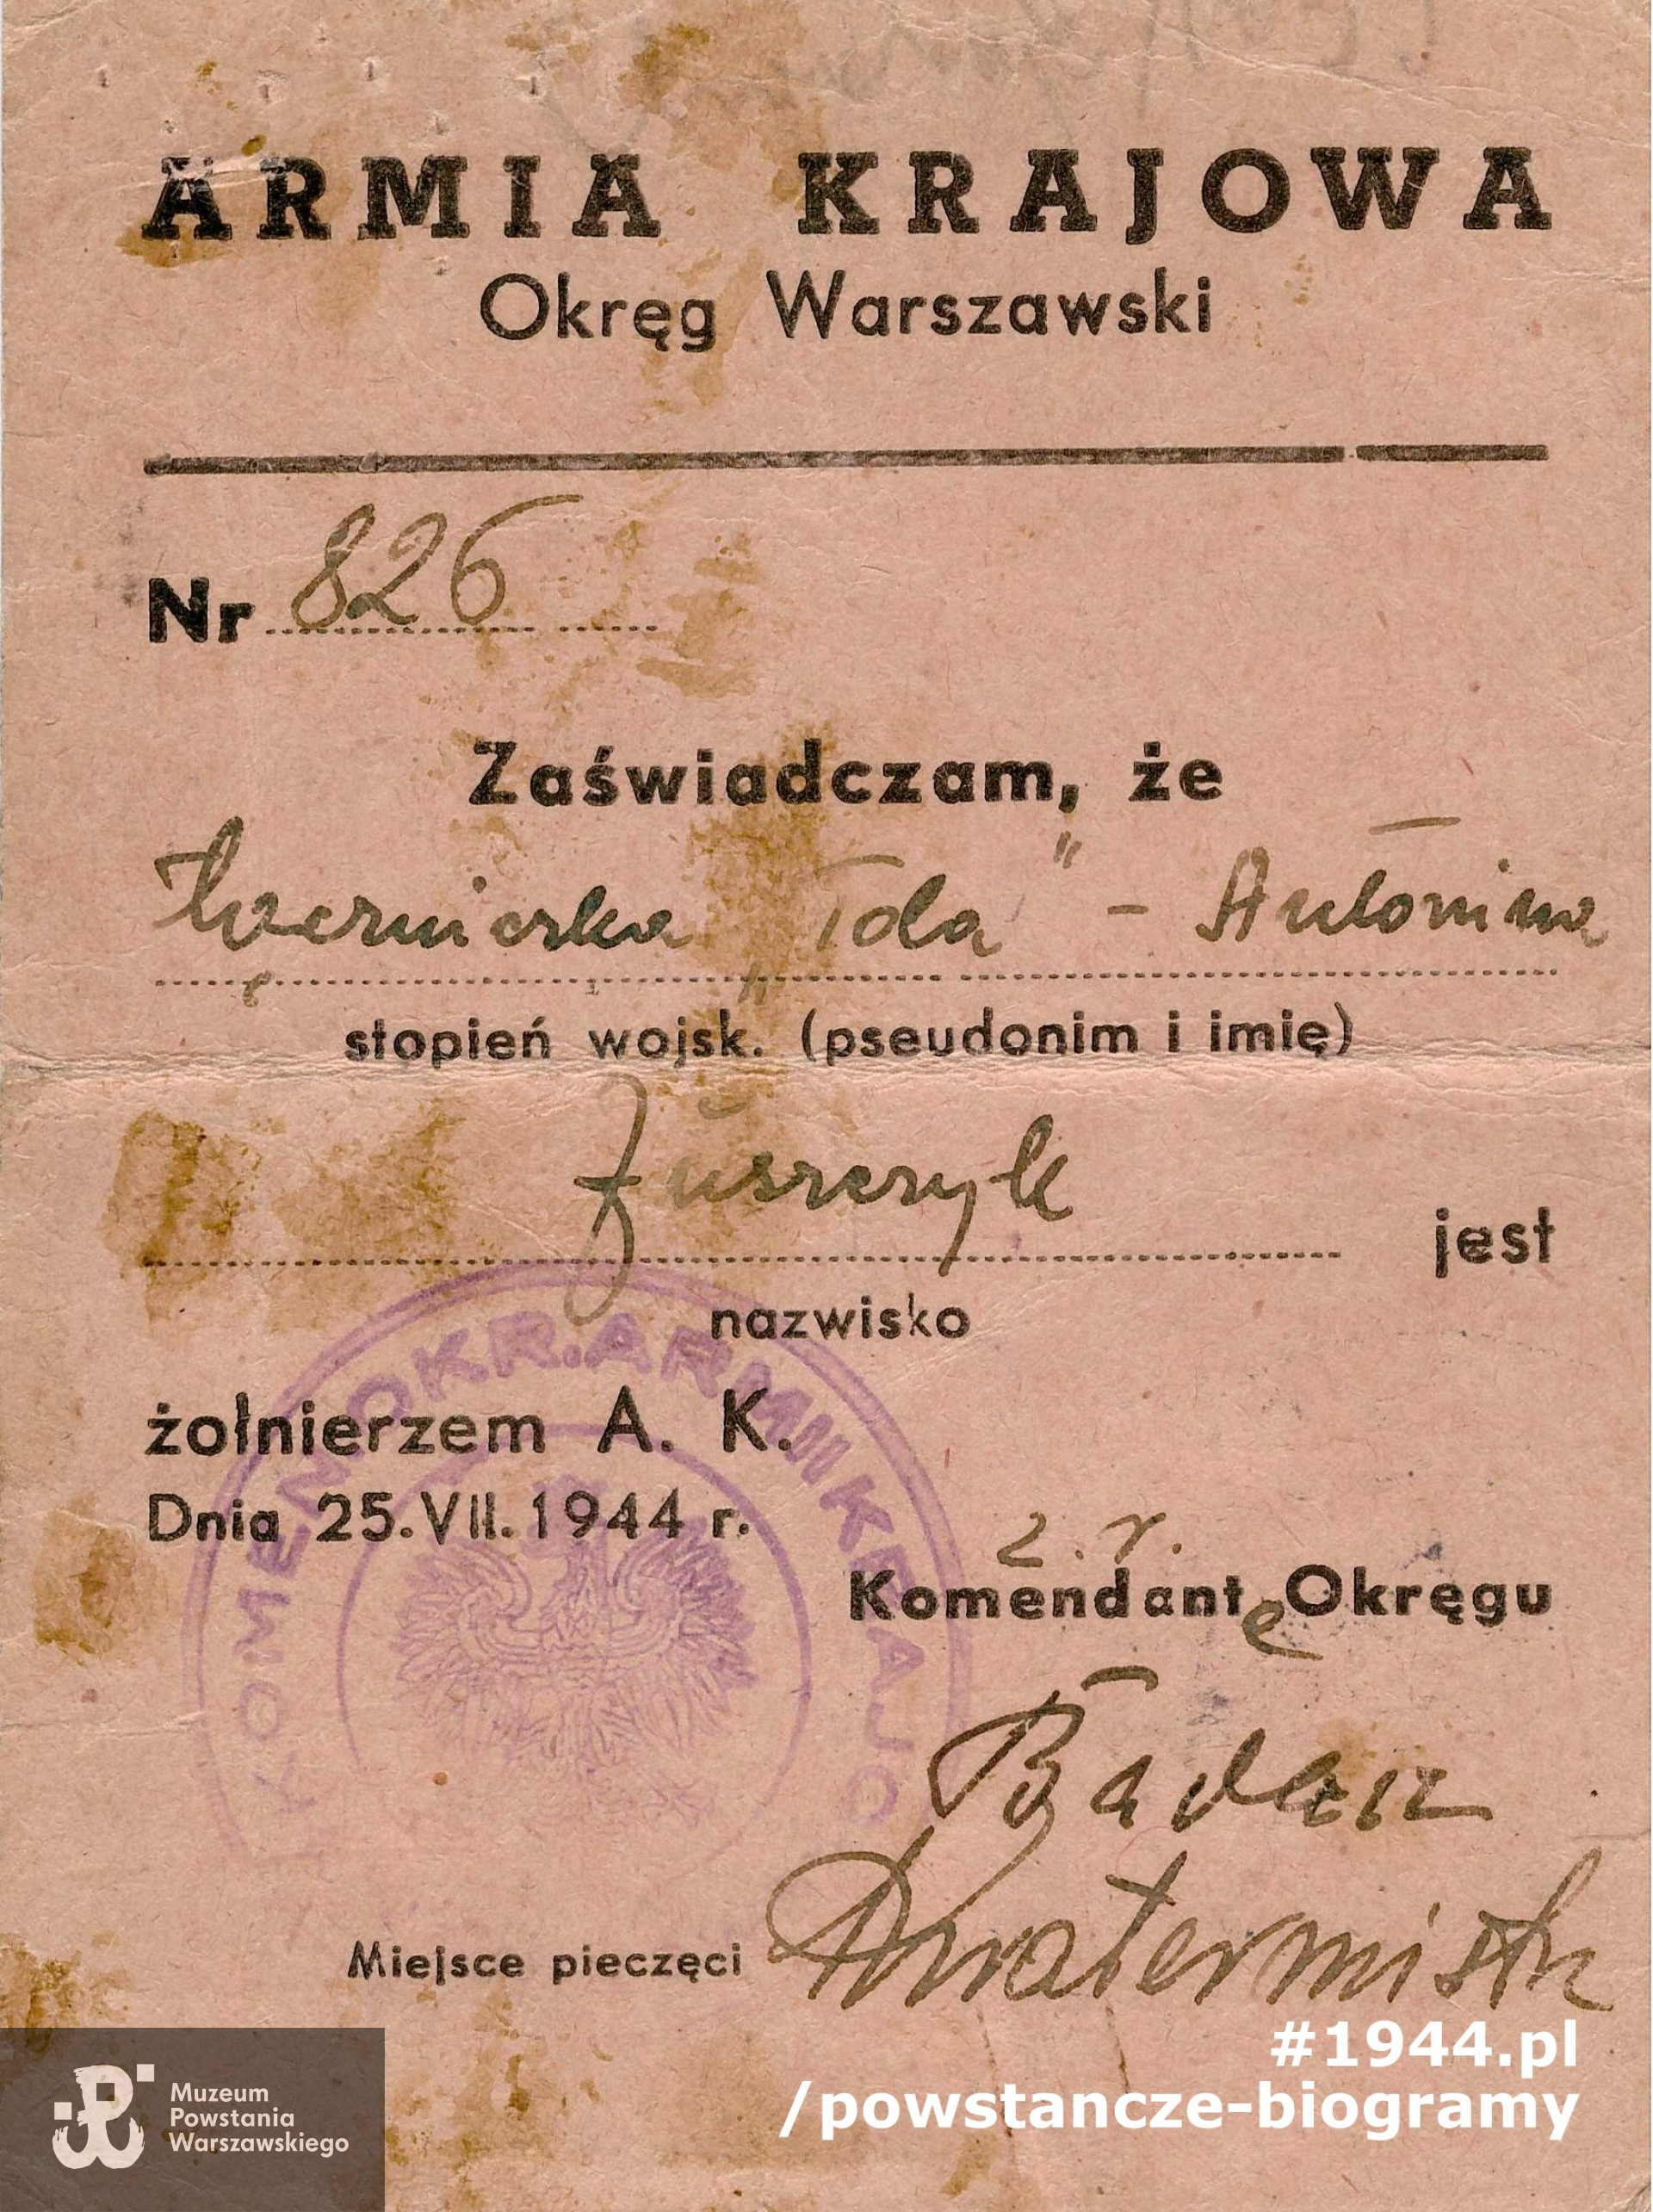 ARMIA KRAJOWA
Okręg Warszawski
Nr 826
Zaświadczam, że
Łączniczka „Tola” - Antonina
stopień wojsk. (pseudonim i imię)
jest
nazwisko
żołnierzem A. K.
Dnia 25.VII.1944 r.
z. r.
Komendanta Okręgu
Miejsce pieczęci
Kwatermistrz
KOMEN. OKR. ARMII KRAJO
#1944.pl
/powstancze-biogramy
Muzeum
Powstania
Warszawskiego